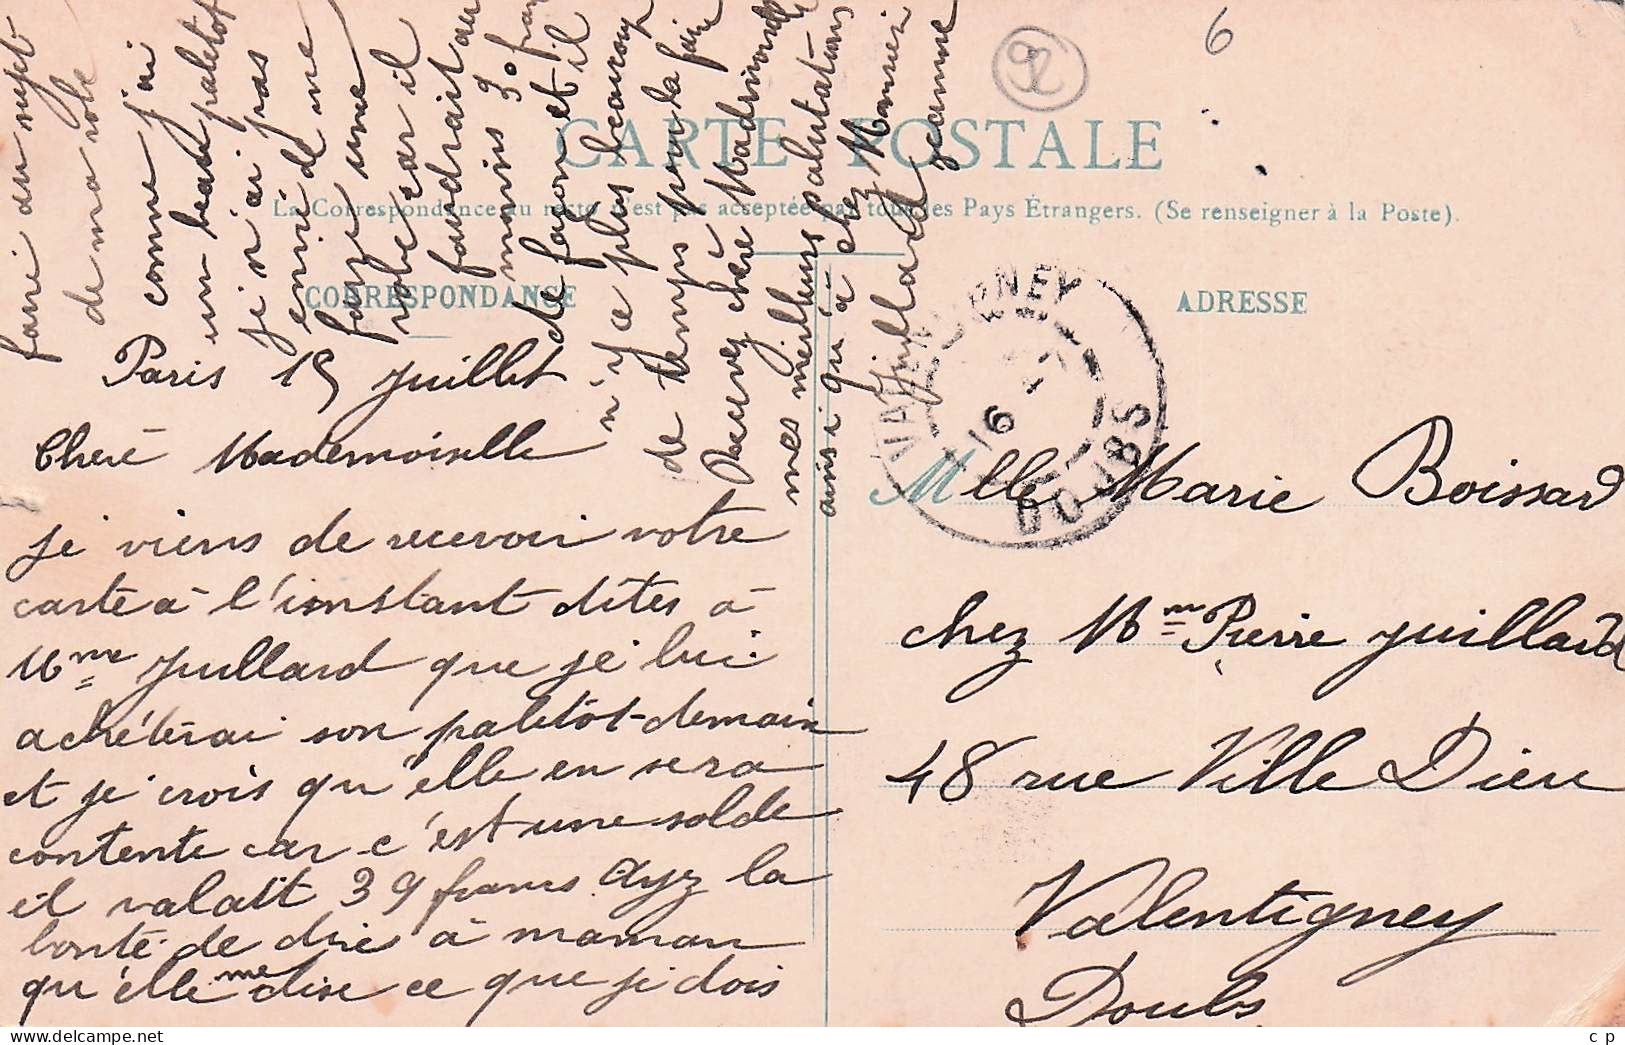 CARTE POSTALE
La Correspondance au recto n'est pas acceptée par tous les Pays Étrangers. (Se renseigner à la Poste).
CORRESPONDANCE
ADRESSE
92
6
VALENTIGNEY
16
DOUBS
Paris 15 juillet
Chere Mademoiselle
je viens de recevoir votre
carte à l'instant dites à
Mme Juillard que je lui
achéterai son paletôt demain
et je crois qu'elle en sera
contente car c'est une solde
il valait 39 francs Ayez la
bonté de dire à maman
qu'elle me dise ce que je dois
faire au sujet
de ma robe
comme j'ai
un beau paletot
je n'ai pas
envie de me
faire une
robe car il
faudrait au
moins 30 fran
de facon et il
n'y a plus beaucoup
de temps pour la faire
Recevez chère Mademoiselle
mes meilleurs salutations
ainsi qu'à chez Monsieur
Juillard Jeanne
Mlle Marie Boissard
chez Mme Pierre Juillard
48 rue Ville Dieu
Valentigney
Doubs
c p